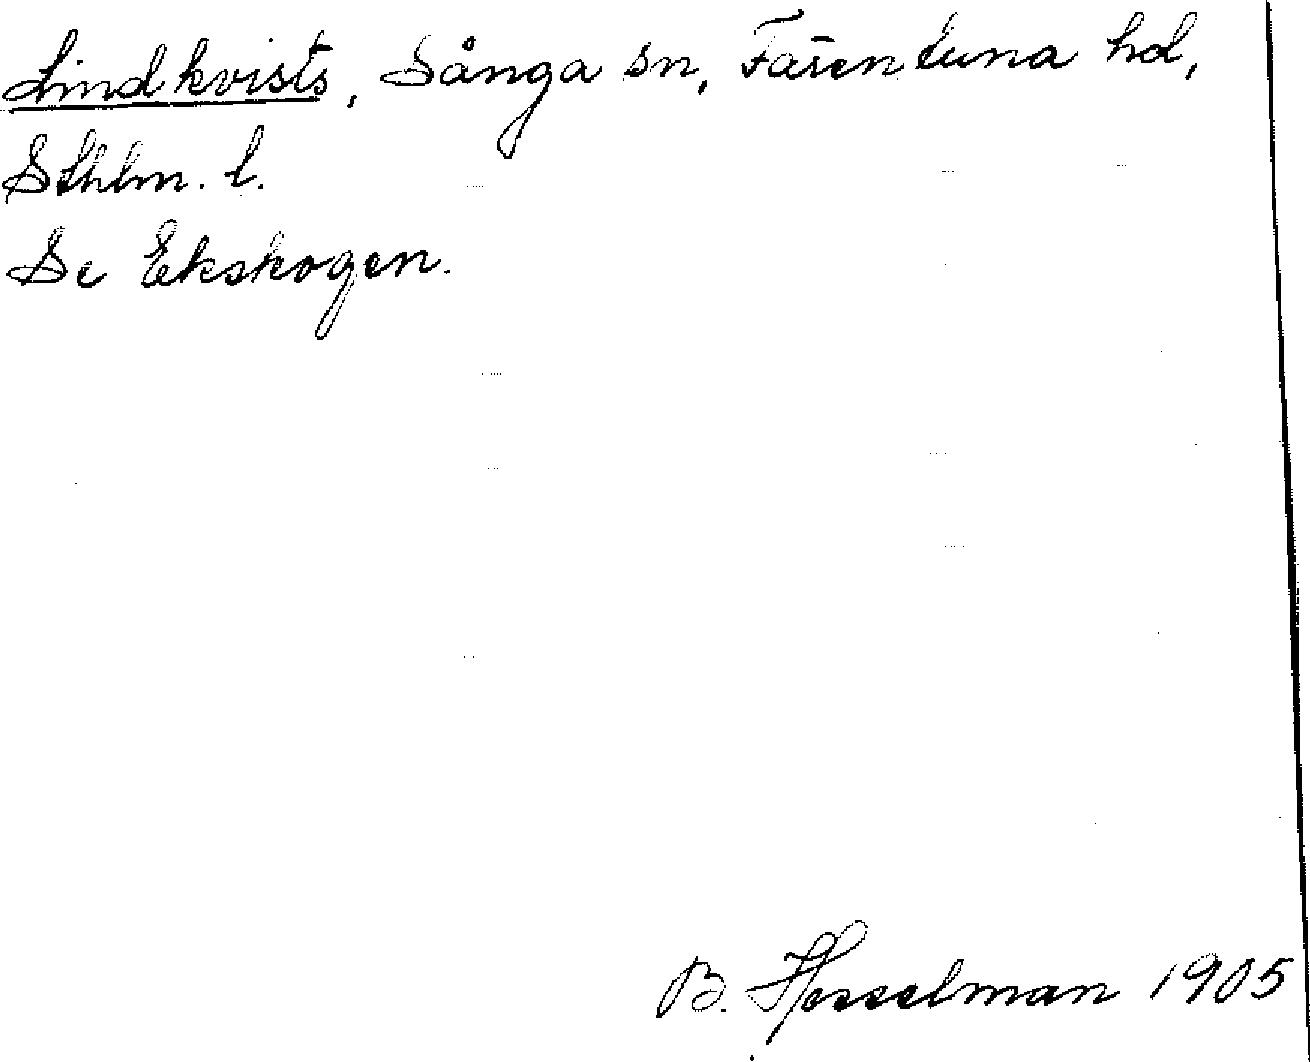 Lindkvists, Sånga sn, Färentuna hd,
Sthlm. l.
Se Ekskogen.
B. Hesselman 1905